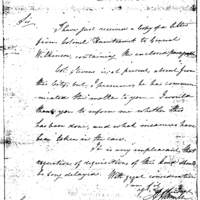 Sir,
I have just received a copy of a letter
from Colonel Hamtramck to General
Wilkinson containing the enclosed paragraph
Col. Stevens is at present absent from
this City, but I presume he has commu-
nicated this matter to you. I would
thank you to inform me whether this
has been done, and what measures have
been taken in the case.
It is very unpleasant that
execution of requisitions of this kind should
be any delayed. With great consideration